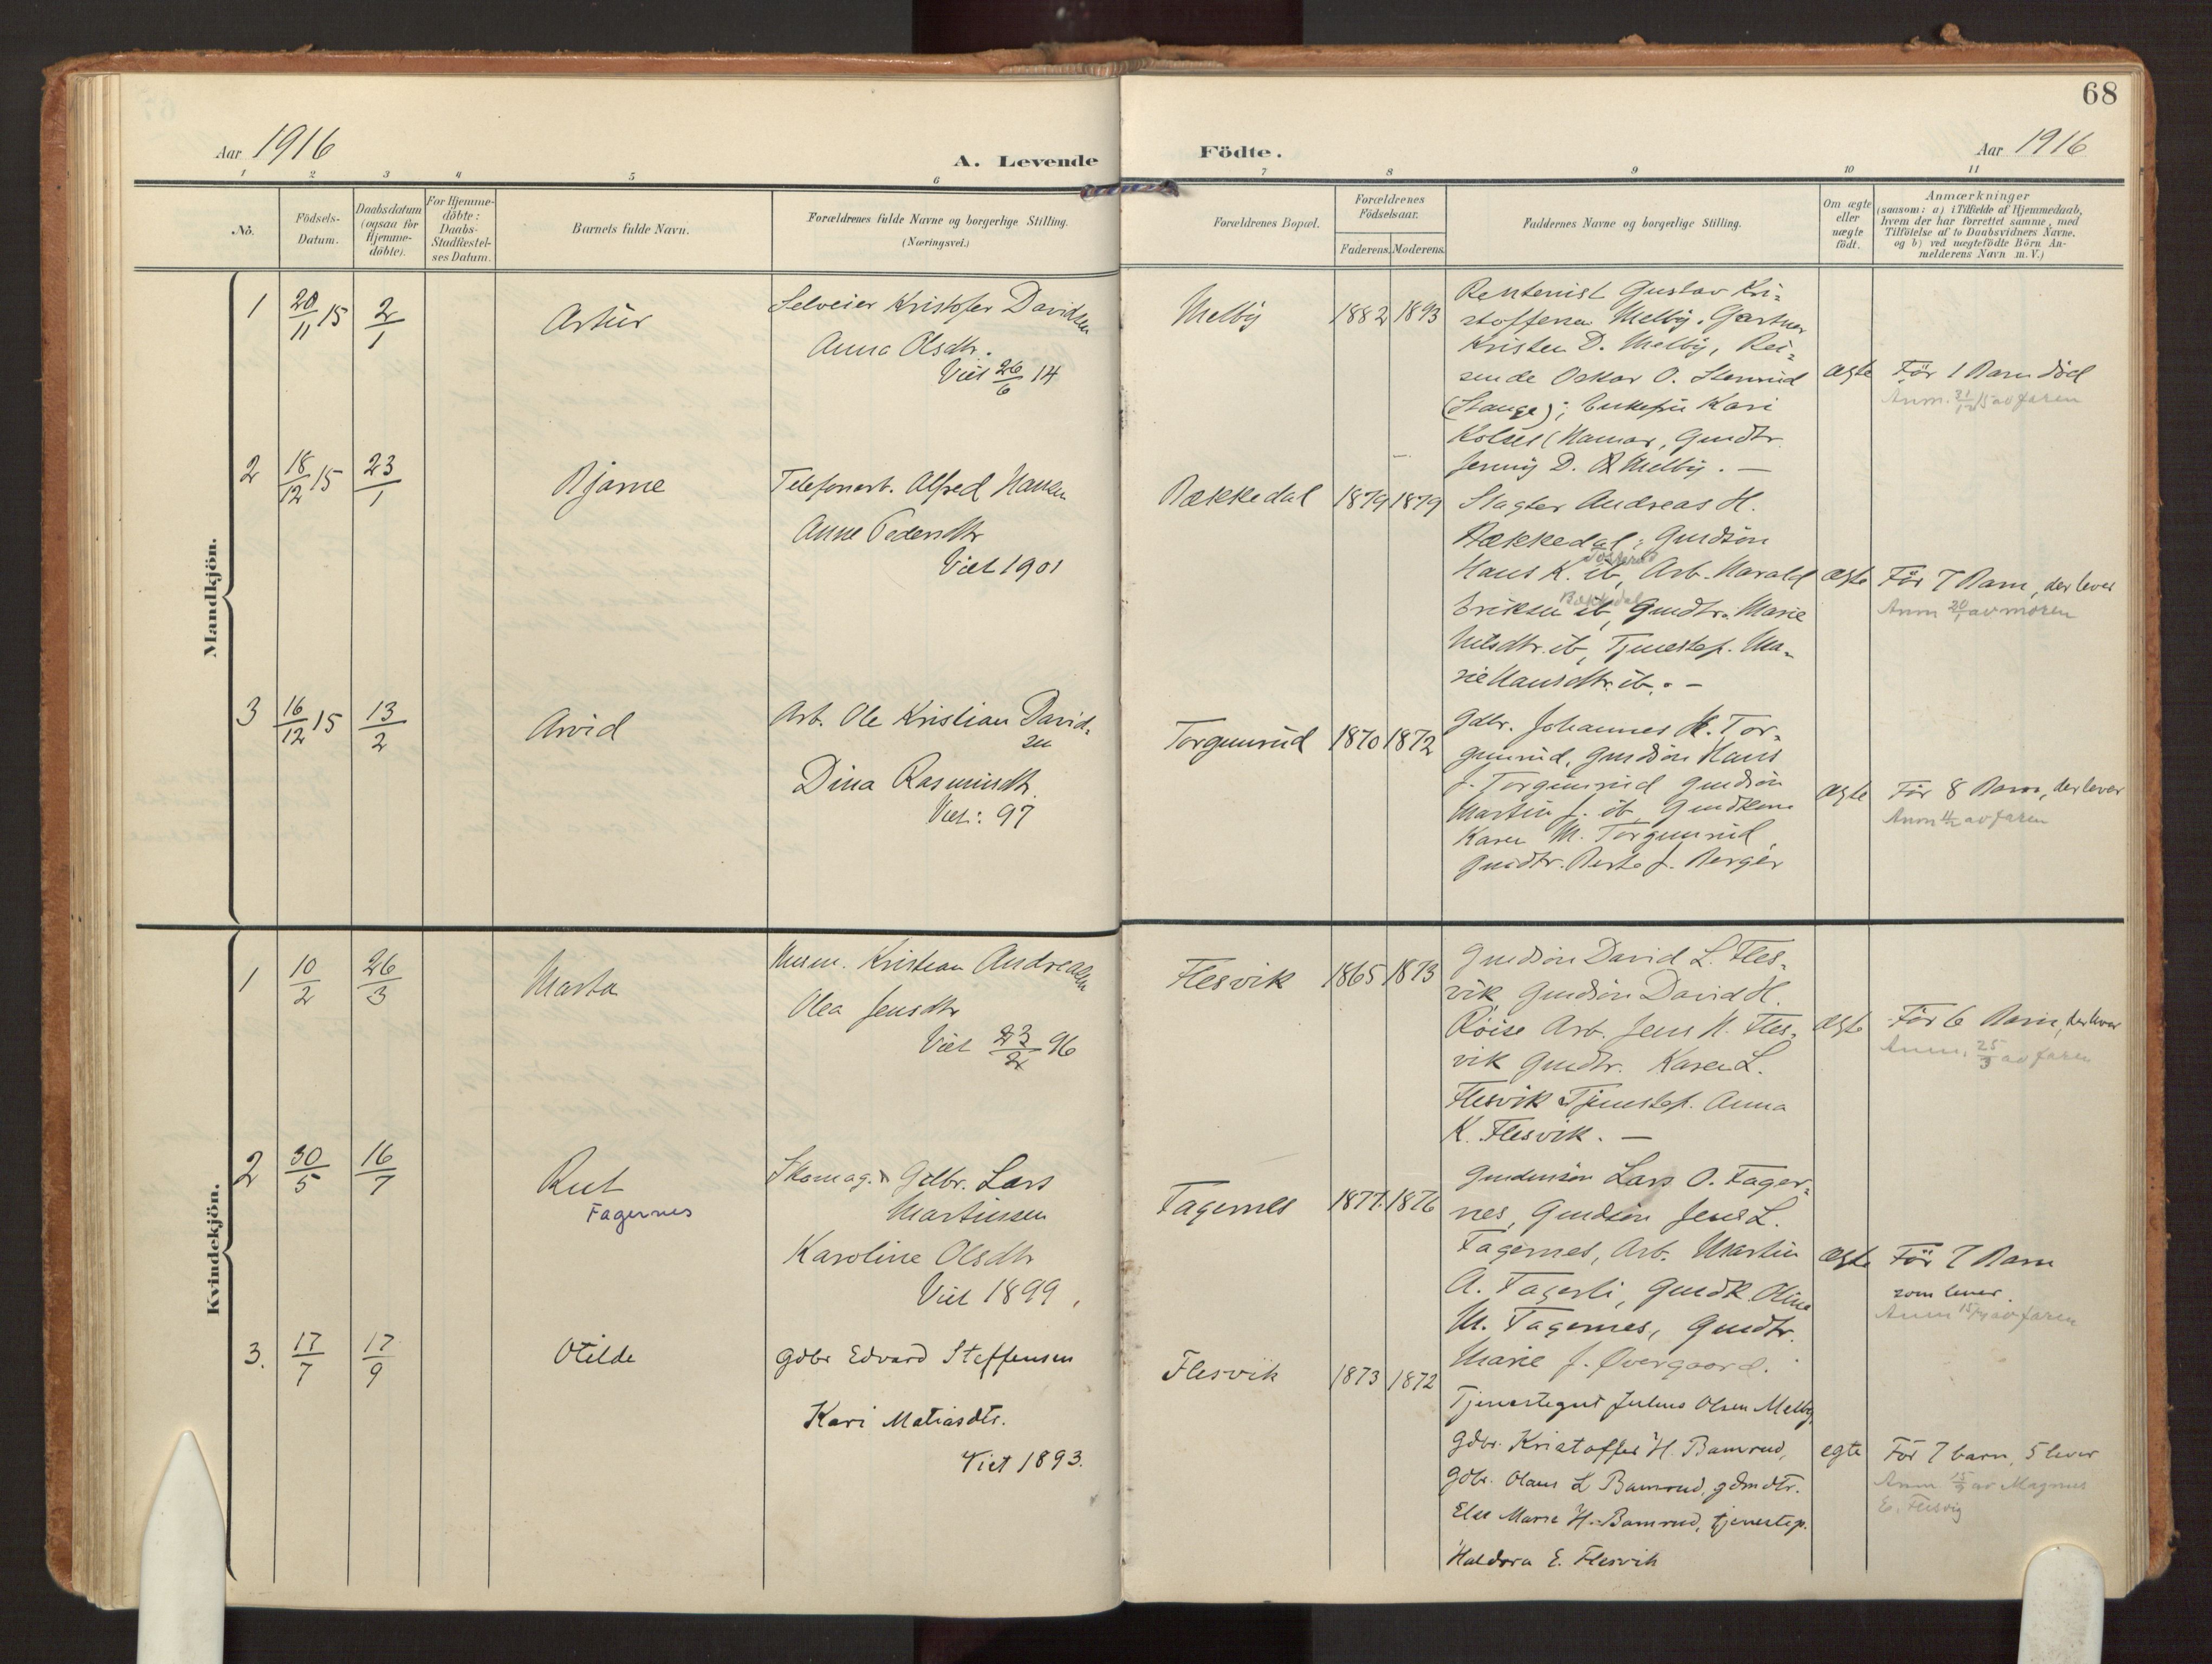 68
Aar 1916
A. Levende
Födte.
Aar 1916
1 2 3 4 5 6 7 8 9 10 11
No.
Födsels-
Datum.
Daabsdatum
(ogsaa for
Hjemme-
döbte).
For Hjemme-
döbte:
Daabs-
Stadfæstel-
ses Datum.
Barnets fulde Navn.
Forældrenes fulde Navne og borgerlige Stilling.
(Næringsvei.)
Forældrenes Bopæl.
Forældrenes
Födselsaar.
Faderens. Moderens.
Faddernes Navne og borgerlige Stilling.
Om ægte
eller
uægte
födt.
Anmærkninger
(saasom: a) i Tilfælde af Hjemmedaab,
hvem der har forrettet samme, med
Tilföielse af to Daabsvidners Navne,
og b) ved uægtefödte Börn An-
melderens Navn m. V.)
Mandkjön.
1 20/11 15 2/1 Artur
Selveier Kristofer Davidsen
Anna Olsdtr.
Viet 26/6 14
Melby 1882 1893
Rentenist Gustav Kri-
stoffersen Melby, Gartner
Kristen D. Melby, Rei-
sende Oskar O. Stenrud
(Stange); Enkefru Kari
Kolset (Hamar, Gmdtr.
Jenny D. Melby. —
ægte
För 1 Barn död
Anm. 31/12 15 av faren
2 18/12 15 23/1 Bjarne
Telefonarb. Alfred Hansen
Anne Pedersdtr
Viet 1901
Bækkedal 1879 1879
Slagter Andreas H.
Bækkedal; Gmdsön
Hans K. ib, Arb. Harald
Eriksen ib, Gmdtr. Marie
Bækkedal
Nilsdtr. ib, Tjenestep. Ma-
rie Hansdtr. ib. . —
ægte
För 7 Barn, der lever
Anm 20/1 av moren
3 16/12 15 13/2 Arvid
Arb. Ole Kristian David-
sen
Dina Rasmusdtr.
Viet: 97
Torgunrud 1870 1872
Gdbr. Johannes H. Tor-
gunrud, Gmdsön Hans
J. Torgunrud Gmdsön
Martin J. ib, Gmdkone
Karen M. Torgunrud,
Gmdtr. Berte J. Berger
ægte
För 8 Barn, der lever
Anm 4/2 av faren
Kvindekjön.
1 10/2 26/3 Marta
Husm. Kristian Andreassen
Olea Jensdtr
Viet 23/2 96
Flesvik 1865 1873
Gmdsön David L. Fles-
vik, Gmdsön David H.
Röise Arb. Jens H. Fles-
vik Gmdtr. Karen L.
Flesvik Tjenestep. Anna
K. Flesvik. —
ægte
För 6 Barn, der lever
Anm. 25/3 av faren
2 30/5 16/7 Rut
Fagernes
Skomag. Gdbr. Lars
Martinsen
Karoline Olsdtr
Viet 1899
Fagernes 1877 1876
Gmdsön Lars O. Fager-
nes, Gmdsön Jens L.
Fagernes, Arb. Martin
A. Fagerli, Gmdk. Oline
M. Fagernes, Gmdtr.
Marie J. Övergaard.
ægte
För 7 Barn
som lever.
Anm 15/7 av faren
3. 17/7 17/9 Otilde
gdbr Edvard Steffensen
Kari Matiasdtr.
Viet 1893.
Flesvik 1873 1872
Tjenestegut Julius Olsen Melby,
gdbr. Kristoffer H. Bamrud,
gdbr. Olaus L Bamrud, gdmdtr.
Else Marie H. Bamrud, tjenestep.
Haldora E. Flesvik
egte
För 7 barn, 5 lever
Anm 15/9 av Magnus
E. Flesvig